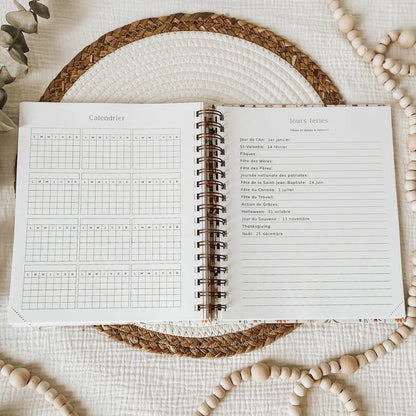 Calendrier
L M M J V S D L M M J V S D L M M J V S D
L M M J V S D L M M J V S D L M M J V S D
L M M J V S D L M M J V S D L M M J V S D
L M M J V S D L M M J V S D L M M J V S D
Jours fériés
Jour de l'An: 1er janvier
St-Valentin: 14 février
Pâques:
Fête des Mères:
Fête des Pères:
Journée nationale des patriotes:
Fête de la Saint-Jean-Baptiste: 24 juin
Fête du Canada: 1 juillet
Fête du Travail:
Action de Grâces:
Halloween: 31 octobre
Jour du Souvenir: 11 novembre
Thanksgiving:
Noël: 25 décembre